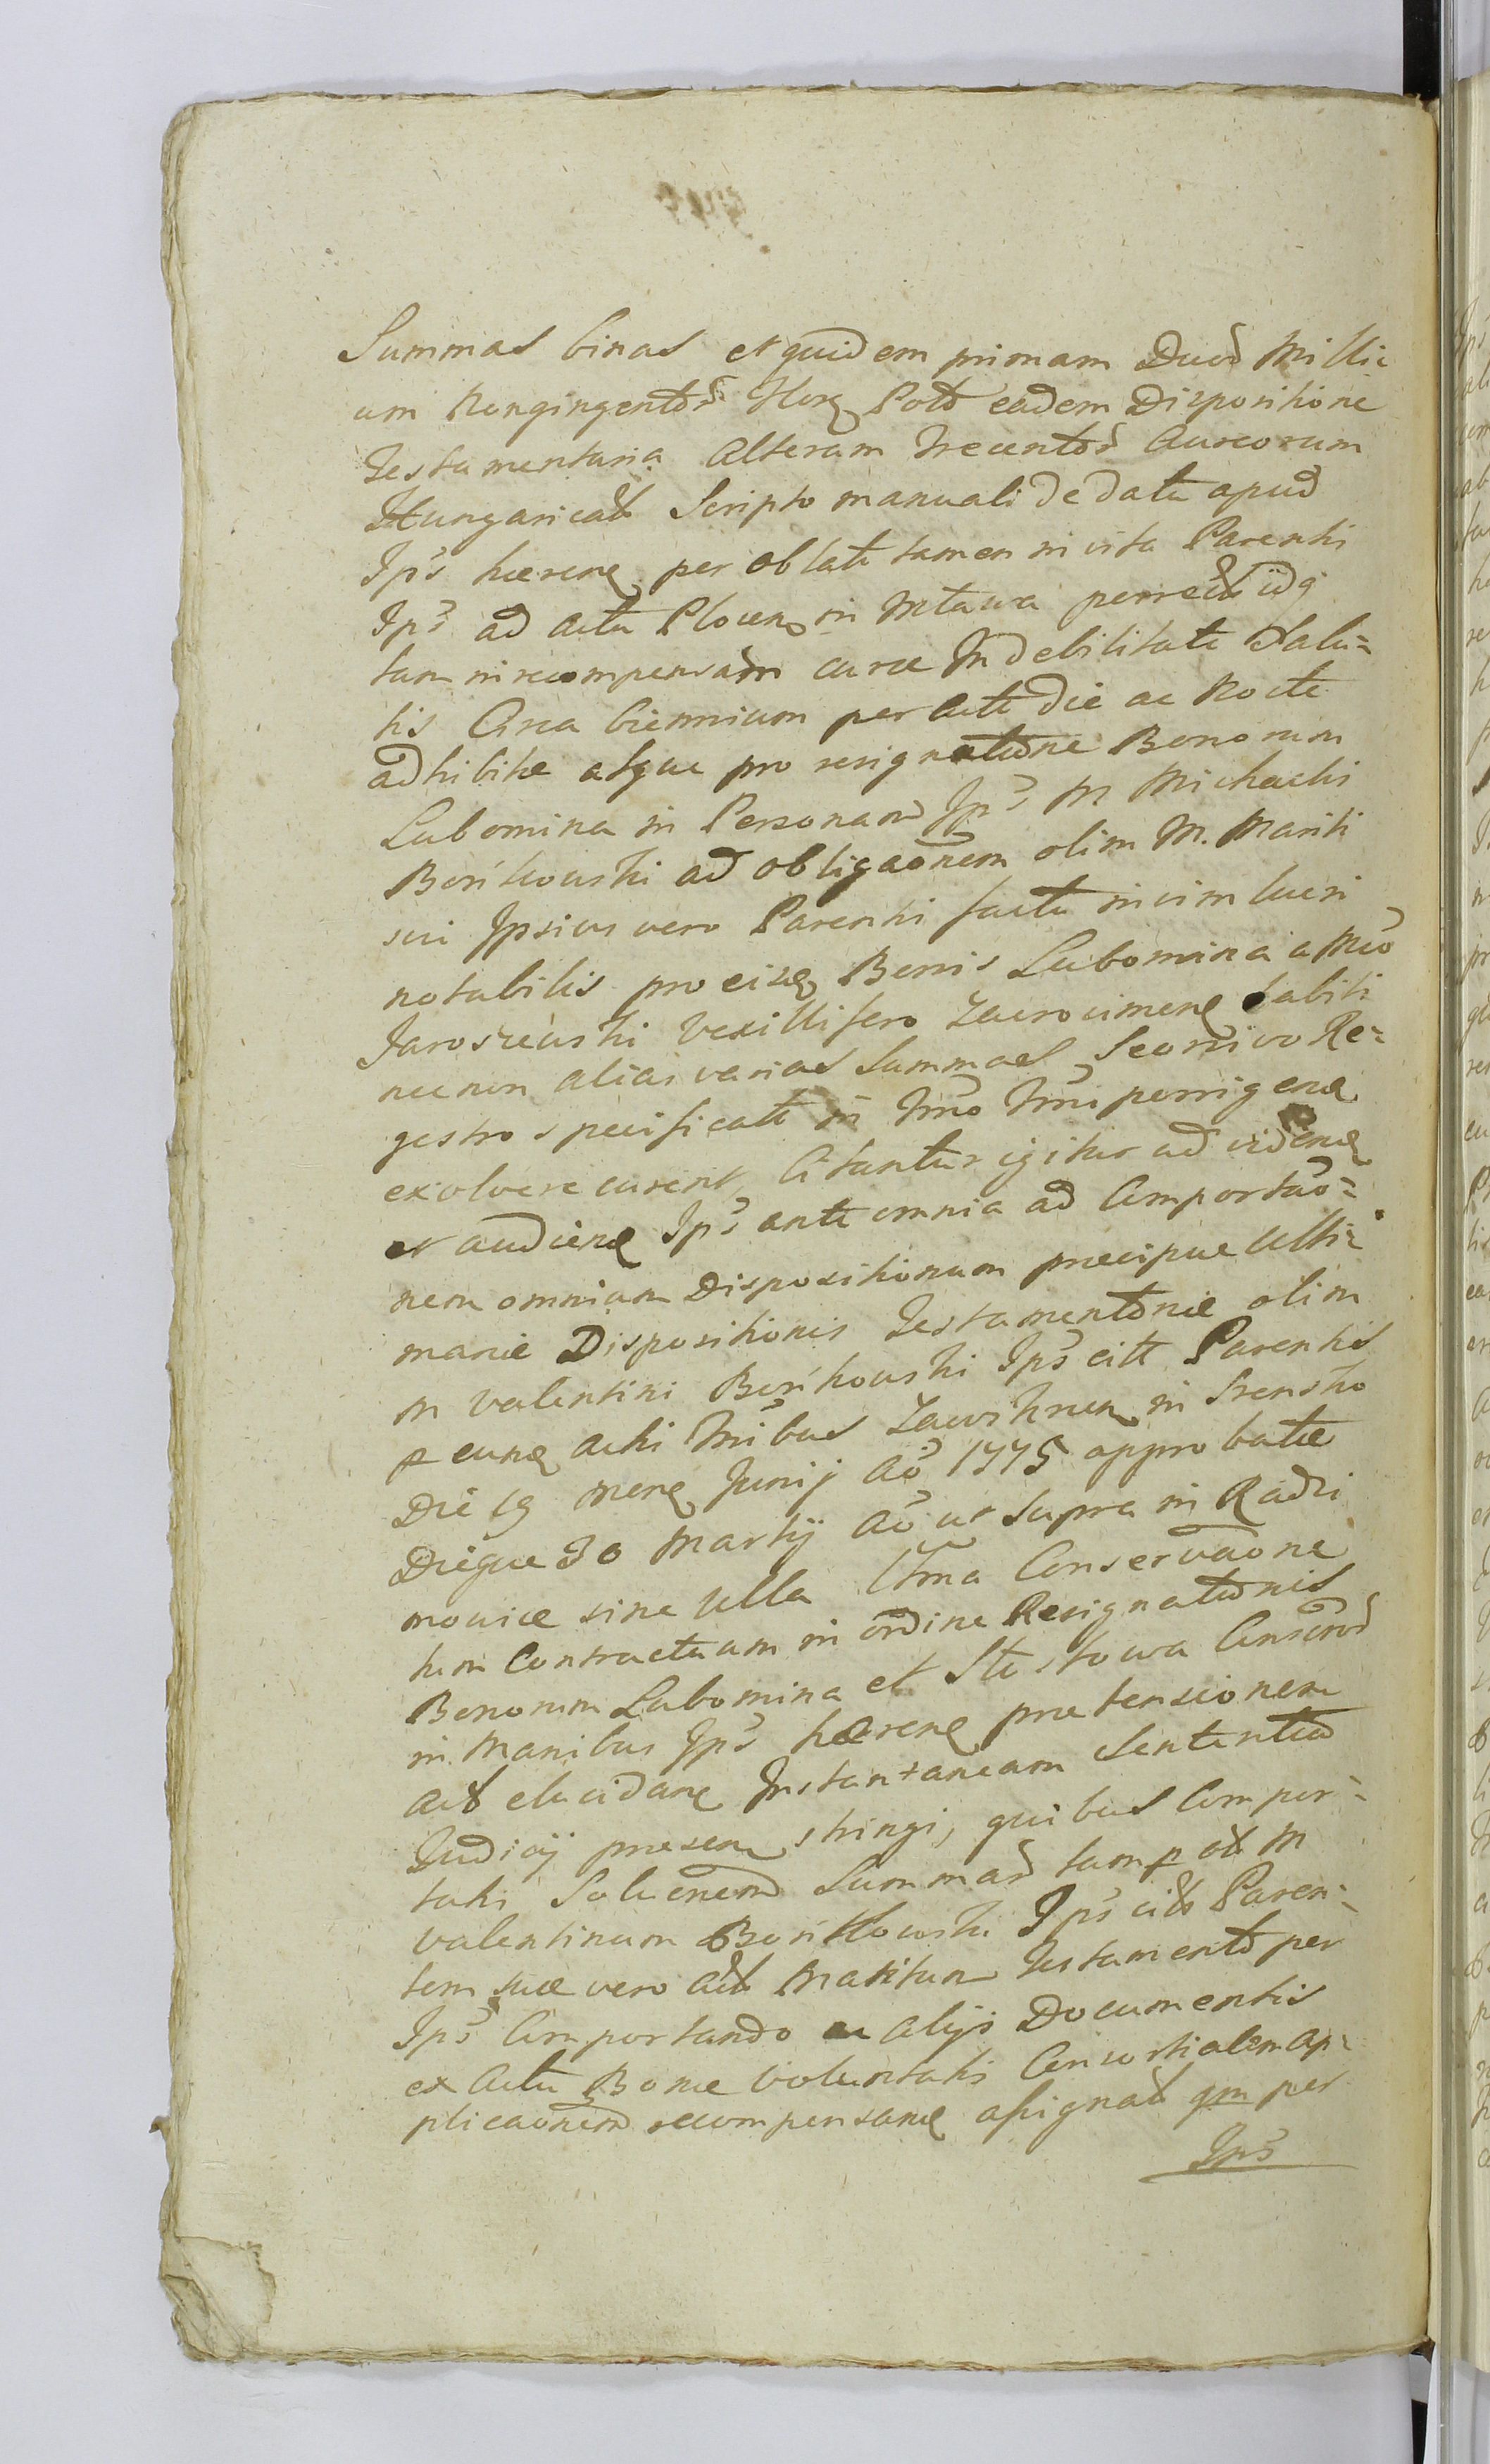 Summas binas et quidem primam Duor Milli=
um Nongingentor Flor Polo eadem Dispositione
Testamentaria Alteram Trecentor Aureorum
Hungarical Scripto manuali de data apud
Ips hæren per oblatã tamen in vita Parentis
Ips ad acta Plocen in Mlawa perrect idq
tam in recompensam curæ In debilitate Salu=
tis Circa biennium per acta die ac Nocte
adhibitæ atque pro resignatione Bonorum
Lubomina in Personam Ips M Michaelis
Bońkowski ad obligaonem olim M. Mariti
sui Ipsius vero Parentis facta in vim lucri
notabilis pro eisq Bonis Lubomina a Mco
Jaroszewski Vexillifero Zacrocimen habiti
nec non alias varias Summas Seorsivo Re=
gestro specificatt in Trno Trni porrigen
exolvere curent, Citantur igitur ad viden
et audien Ips ante omnia ad Comportao=
nem omnium Dispositionum præcipue Ulti=
mariæ Dispositionis Testamentoriæ olim
M Valentini Bońkowski Ips citt Parentis
p eunq acti Tribus Zawskrnen in Srensko
Die 19 mens Junij Ao 1775 approbatæ
Dieque 30 Martij Ao ut Supra in Radzi
mowice sine Ulla Ltma Conservaone
tum Contractuum in ordine Resignationis
Bonorum Lubomina et Stostowa Conseror
in Manibus Ips hæren prætensionem
act elucidan Instantaneam Sententia
Judicij præsen stringi, quibus Compor=
tatis Solvenem Summar tam p ol M
Valentinum Bońkowski Ips citt Paren=
tem suæ vero act Maritum Testamento per
Ips Comportando ac alijs Documentis
ex Actu Bonæ Voluntatis Consortialem ap=
plicaonem recompensan assignat qm per
Ips